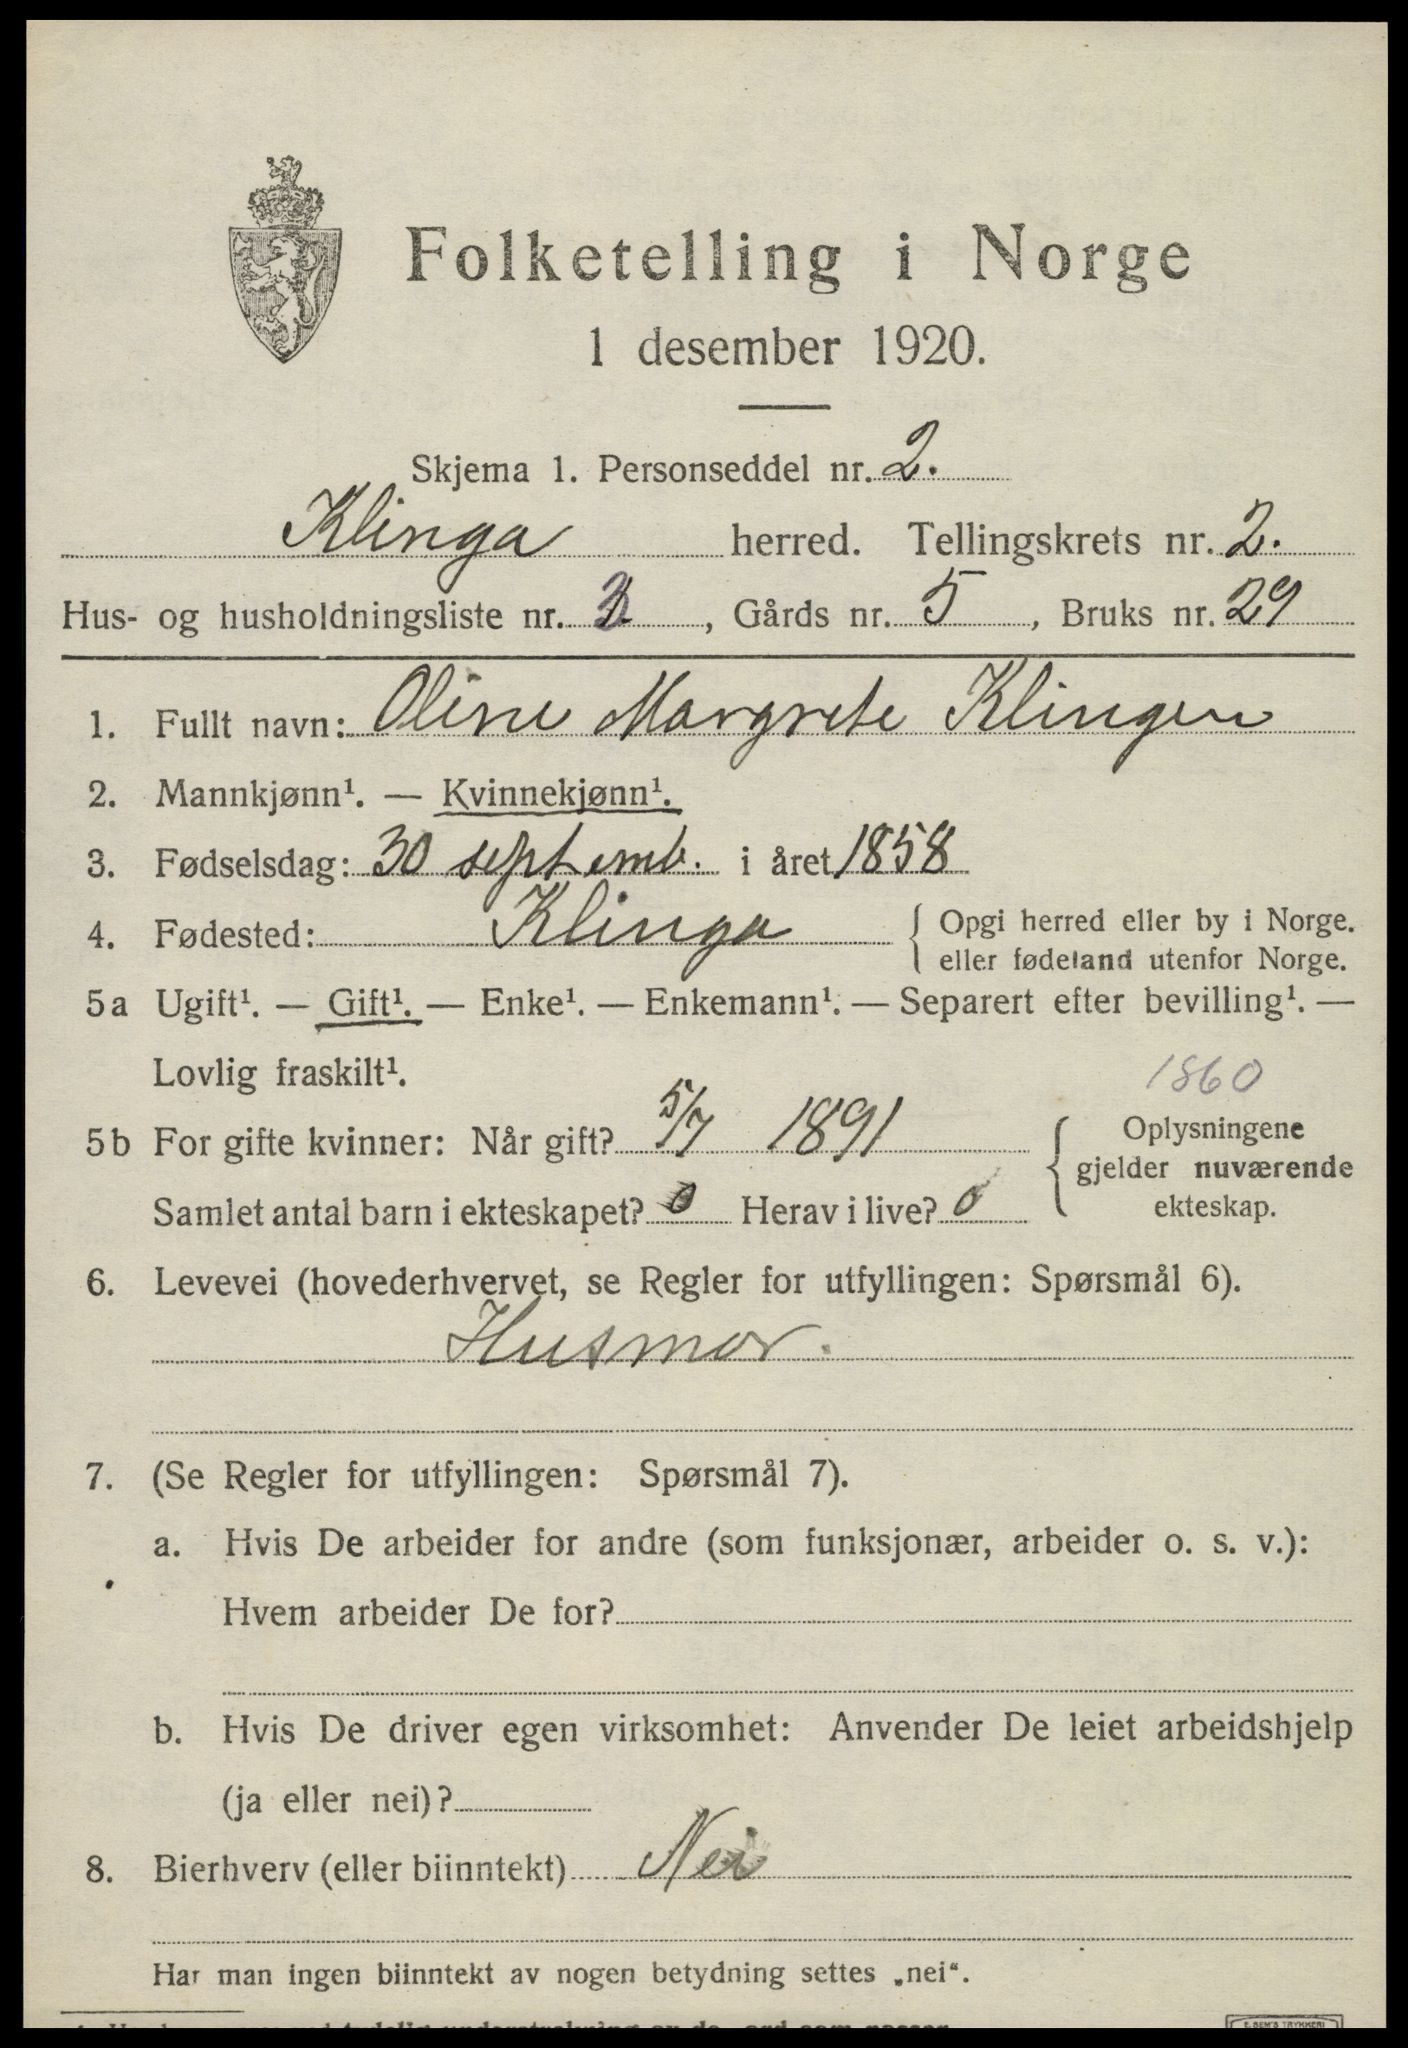 Folketelling i Norge
1 desember 1920.
Skjema 1. Personseddel nr. 2.
Klinga herred. Tellingskrets nr. 2.
Hus- og husholdningsliste nr. 3, Gårds nr. 5, Bruks nr. 29
1. Fullt navn: Oline Margrete Klingen
2. Mannkjønn¹. — Kvinnekjønn¹.
3. Fødselsdag: 30 septemb. i året 1858
4. Fødested: Klinga { Opgi herred eller by i Norge.
eller fødeland utenfor Norge.
5a Ugift¹. — Gift¹. — Enke¹. — Enkemann¹. — Separert efter bevilling¹. —
Lovlig fraskilt¹.
1860
5b For gifte kvinner: Når gift? 5/7 1891 { Oplysningene
gjelder nuværende
ekteskap.
Samlet antal barn i ekteskapet? 0 Herav i live? 0
6. Levevei (hovederhvervet, se Regler for utfyllingen: Spørsmål 6).
Husmor.
7. (Se Regler for utfyllingen: Spørsmål 7).
a. Hvis De arbeider for andre (som funksjonær, arbeider o. s. v.):
Hvem arbeider De for?
b. Hvis De driver egen virksomhet: Anvender De leiet arbeidshjelp
(ja eller nei)?
8. Bierhverv (eller biinntekt) Nei
Har man ingen biinntekt av nogen betydning settes „nei“.